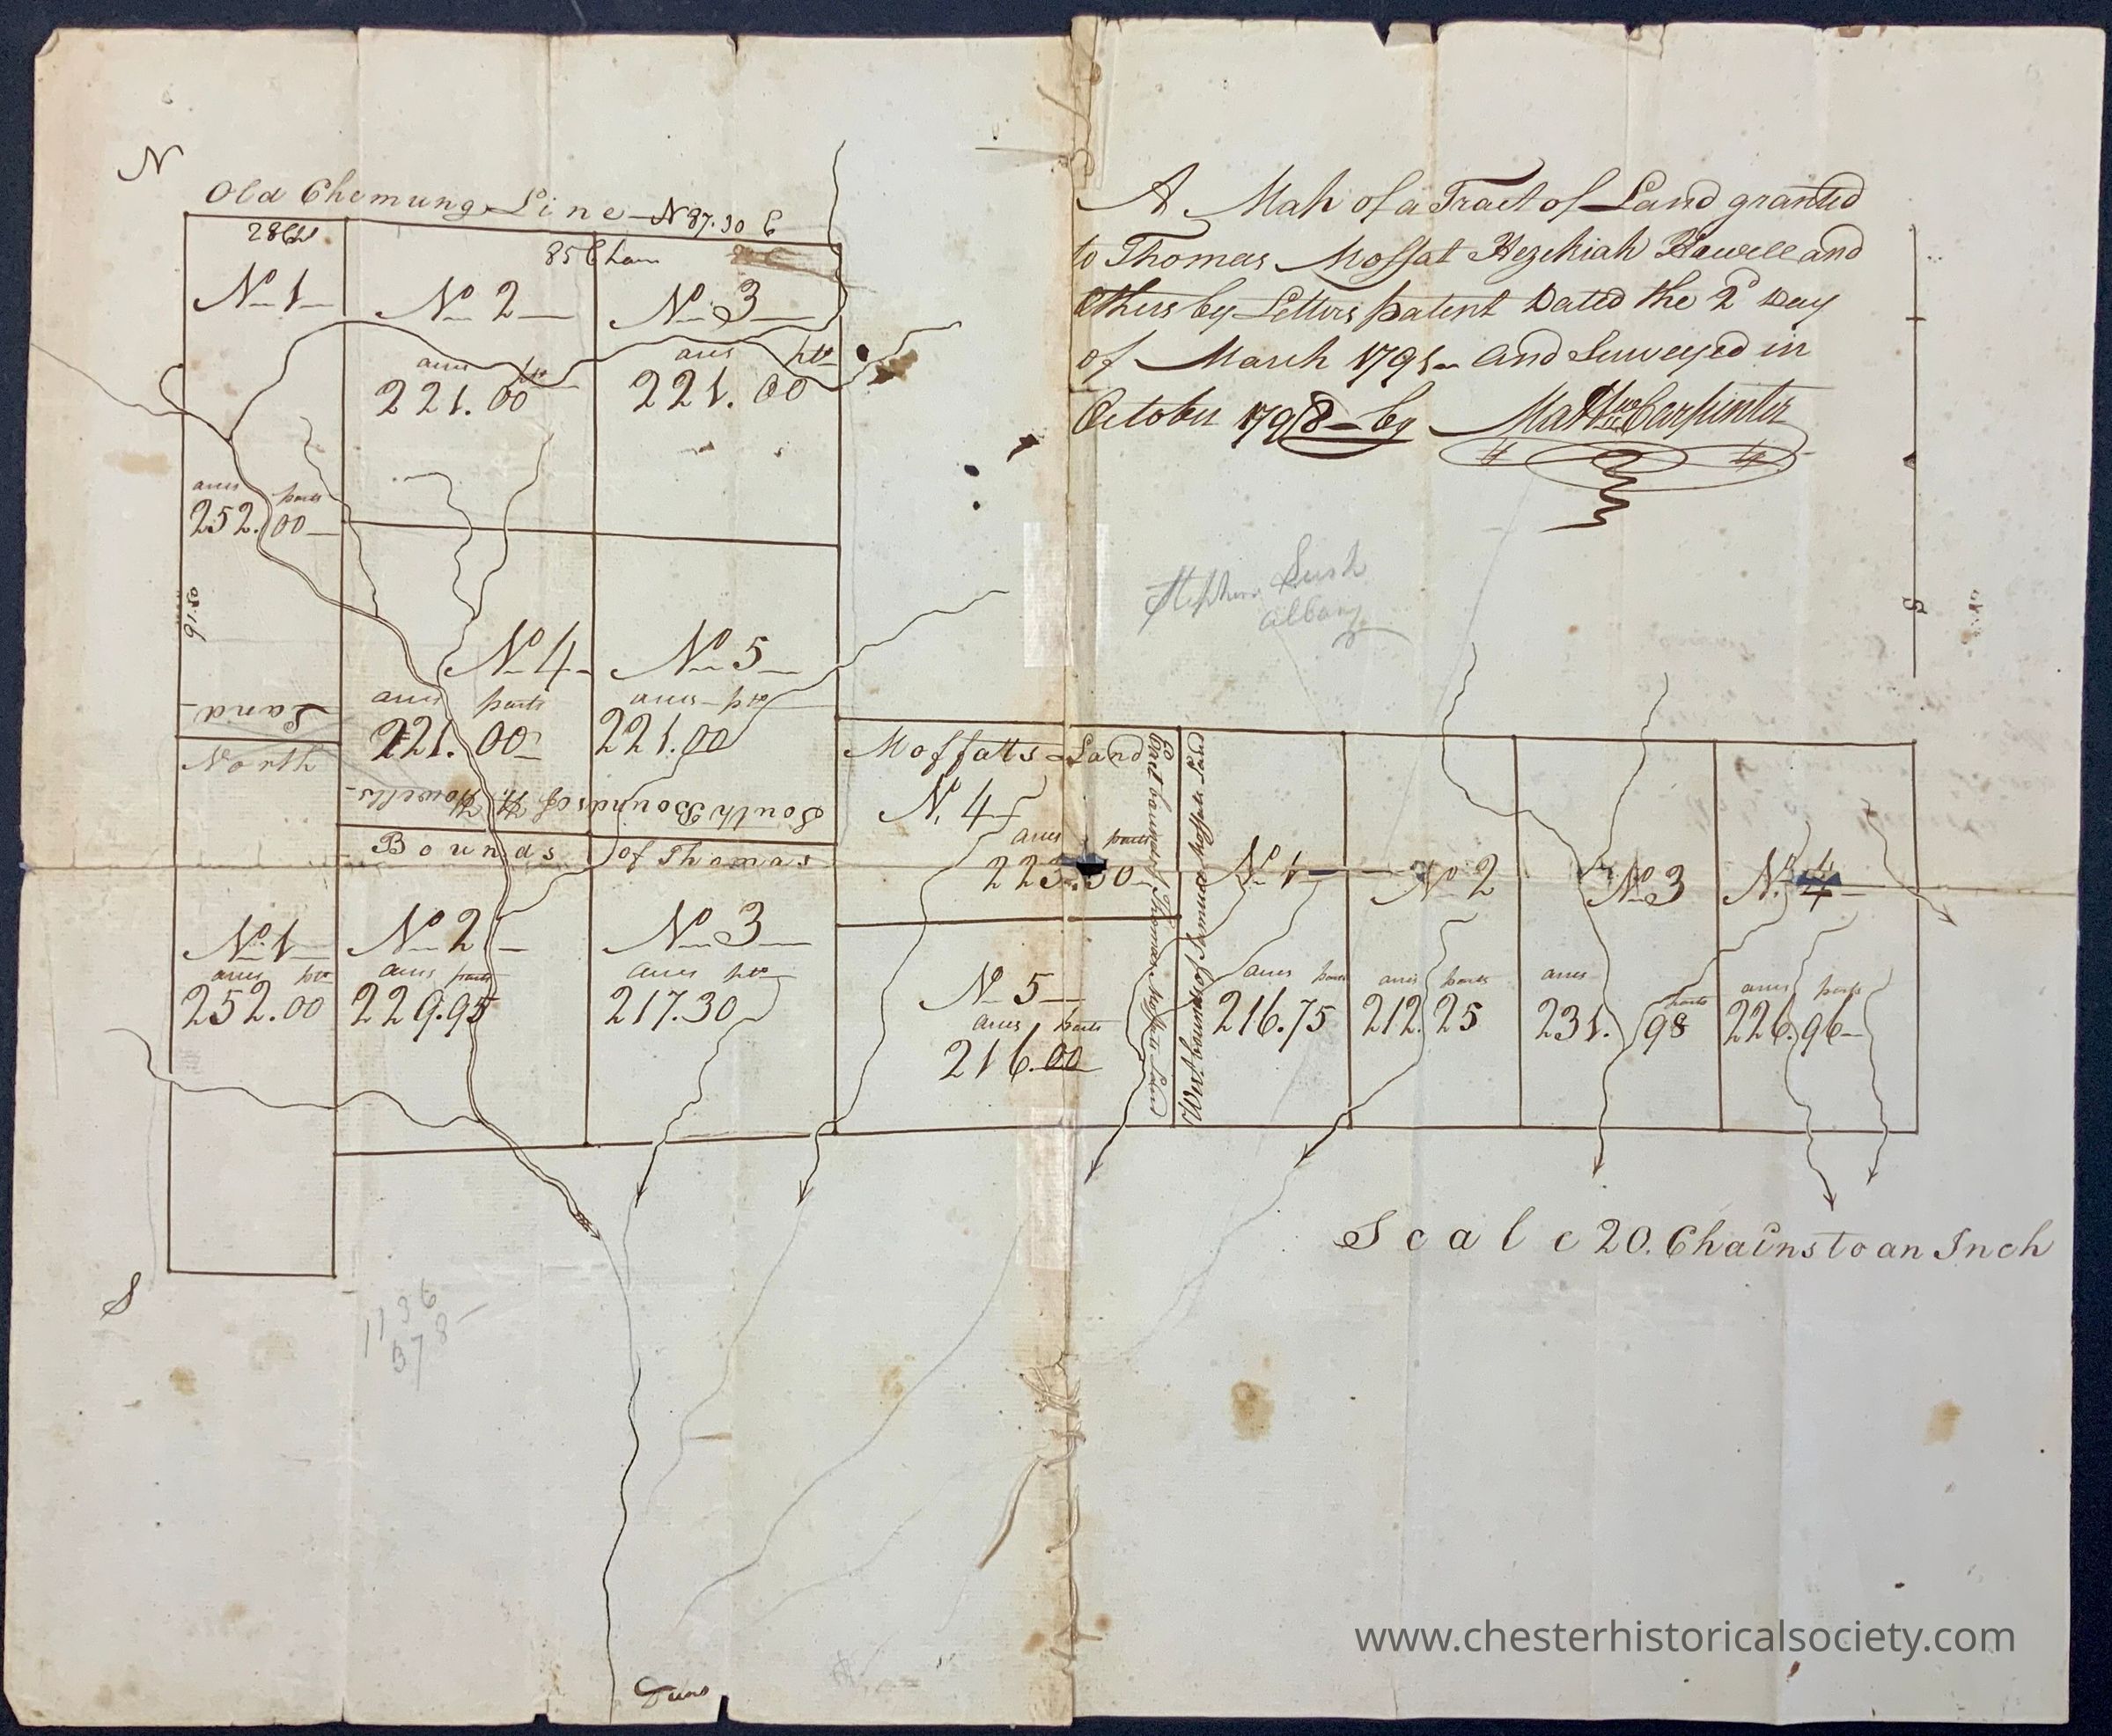 N
Old Chemung Line N 87.30 E
28 Ch
85 Chain
No 1
No 2
No 3
acres pts
221.00
acres pts
221.00
acres parts
252.00
91.50
No 4
No 5
acres parts
221.00
acres pts
221.00
South Bounds of H. Howells
Land
North Bounds of Thomas
Moffatts Land
No 1
acres pts
252.00
No 2
acres parts
229.95
No 3
acres pts
217.30
N. 4
acres parts
No 5
acres parts
216.00
East bounds of Thomas Moffatts Land
West bounds of Samuel Moffatts Land
No 1
acres parts
216.75
No 2
acres parts
212.25
No 3
acres parts
231.98
N. 4
acres parts
226.96
S
A Map of a Tract of Land granted
to Thomas Moffat Hezekiah Howell and
Others by Letters patent Dated the 2d Day
of March 1795 and Surveyed in
October 1798 by Matthw Carpenter
S
Stephen Lush
Albany
Scale 20. Chains to an Inch
1136
378
www.chesterhistoricalsociety.com